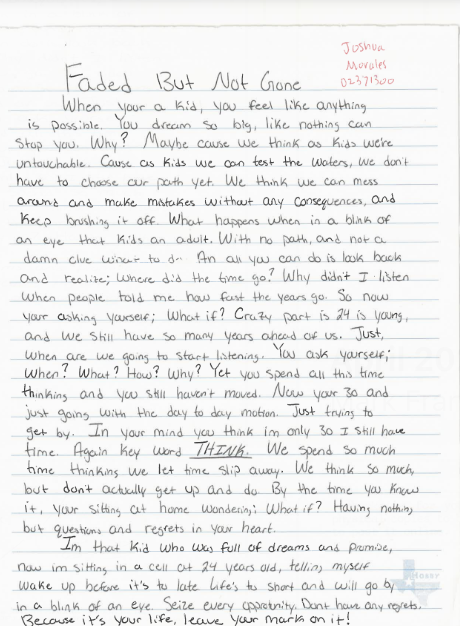 Joshua
Morales
02371300
Faded But Not Gone
When your a kid, you feel like anything
is possible. You dream so big, like nothing can
stop you. Why? Maybe cause we think as kids we're
untouchable. Cause as kids we can test the waters, we don't
have to choose our path yet. We think we can mess
around and make mistakes without any consequences, and
keep brushing it off. What happens when in a blink of
an eye that kids an adult. With no path, and not a
damn clue what to do. An all you can do is look back
and realize; Where did the time go? Why didn't I listen
when people told me how fast the years go. So now
your asking yourself; What if? Crazy part is 24 is young,
and we still have so many years ahead of us. Just,
when are we going to start listening. You ask yourself;
When? What? How? Why? Yet you spend all this time
thinking and you still haven't moved. Now your 30 and
just going with the day to day motion. Just trying to
get by. In your mind you think im only 30 I still have
time. Again key word THINK. We spend so much
time thinking we let time slip away. We think so much,
but don't actually get up and do By the time you know
it, your sitting at home wondering; What if? Having nothing
but questions and regrets in your heart.
Im that kid who was full of dreams and promise,
now im sitting in a cell at 24 years old, telling myself
wake up before it's to late Life's to short and will go by
in a blink of an eye. Seize every oppretunity. Dont have any regrets.
Because it's your life, leave your mark on it!